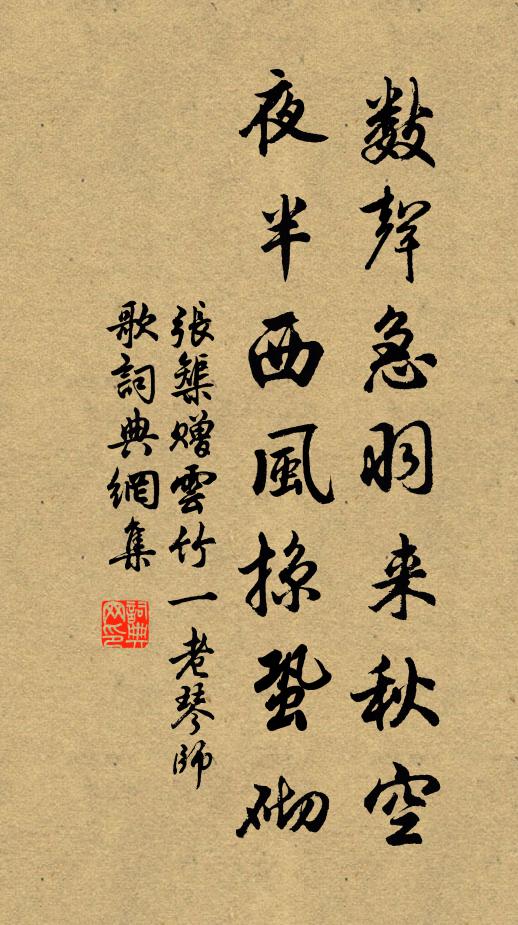 數聲急羽来秋空
夜半西風掠蛩砌
張榘赠雲竹一老琴師
歌詞典網集
詞典網印